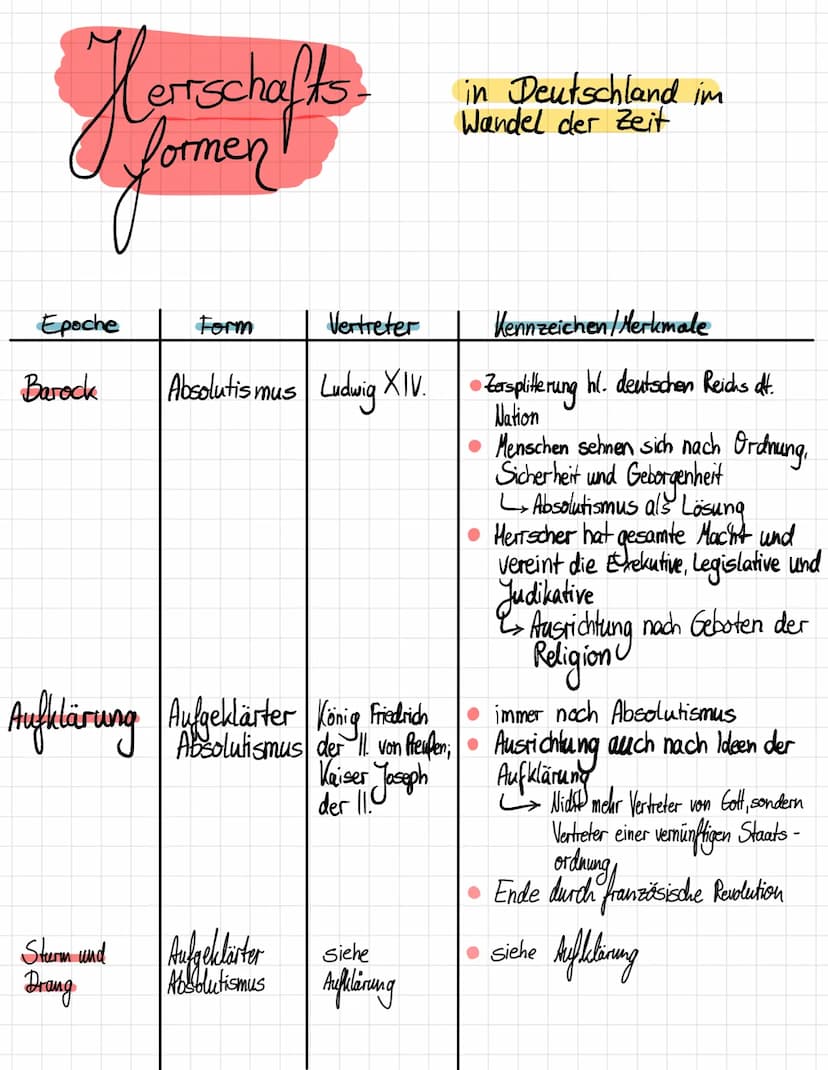 Herrschafts-
formen
in Deutschland im
Wandel der Zeit
Epoche
Form
Vertreter
Kennzeichen/Merkmale
Barock
Absolutismus
Ludwig XIV.
Zersplitterung hl. deutschen Reichs dt.
Nation
Menschen sehnen sich nach Ordnung,
Sicherheit und Geborgenheit
↳ Absolutismus als Lösung
Herrscher hat gesamte Macht und
vereint die Exekutive, Legislative und
Judikative
↳ Ausrichtung nach Geboten der
Religion
Aufklärung
Aufgeklärter
Absolutismus
König Friedrich
der II. von Preußen;
Kaiser Joseph
der II.
immer noch Absolutismus
Ausrichtung auch nach Ideen der
Aufklärung
↳ Nicht mehr Vertreter von Gott, sondern
Vertreter einer vernünftigen Staats-
ordnung
Ende durch französische Revolution
Sturm und
Drang
Aufgeklärter
Absolutismus
siehe
Aufklärung
siehe Aufklärung